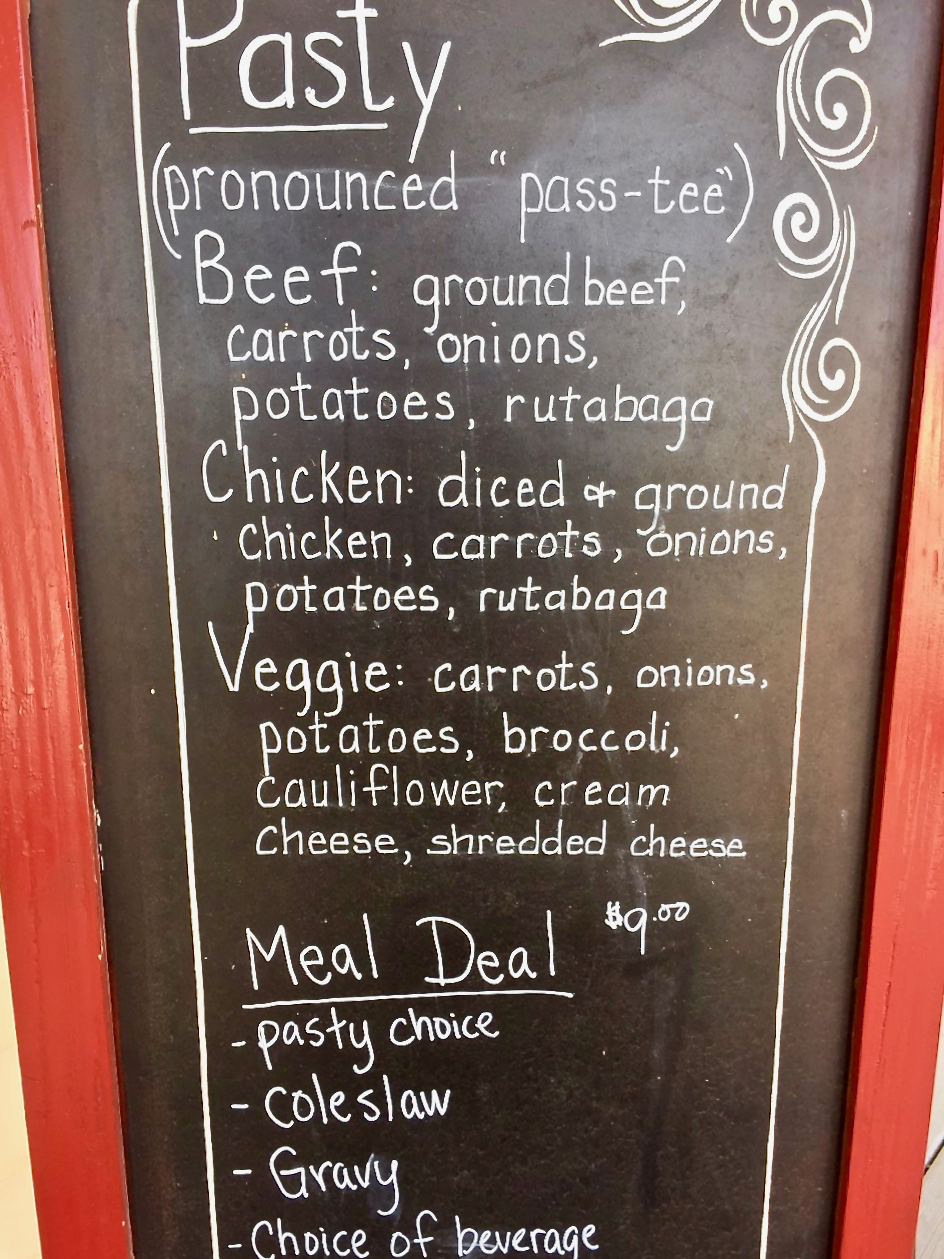 Pasty
(pronounced "pass-tee")
Beef: ground beef,
carrots, onions,
potatoes, rutabaga
Chicken: diced & ground
Chicken, carrots, onions,
potatoes, rutabaga
Veggie: carrots, onions,
potatoes, broccoli,
Cauliflower, cream
Cheese, shredded cheese
Meal Deal $9.00
- pasty choice
- Coleslaw
- Gravy
- Choice of beverage